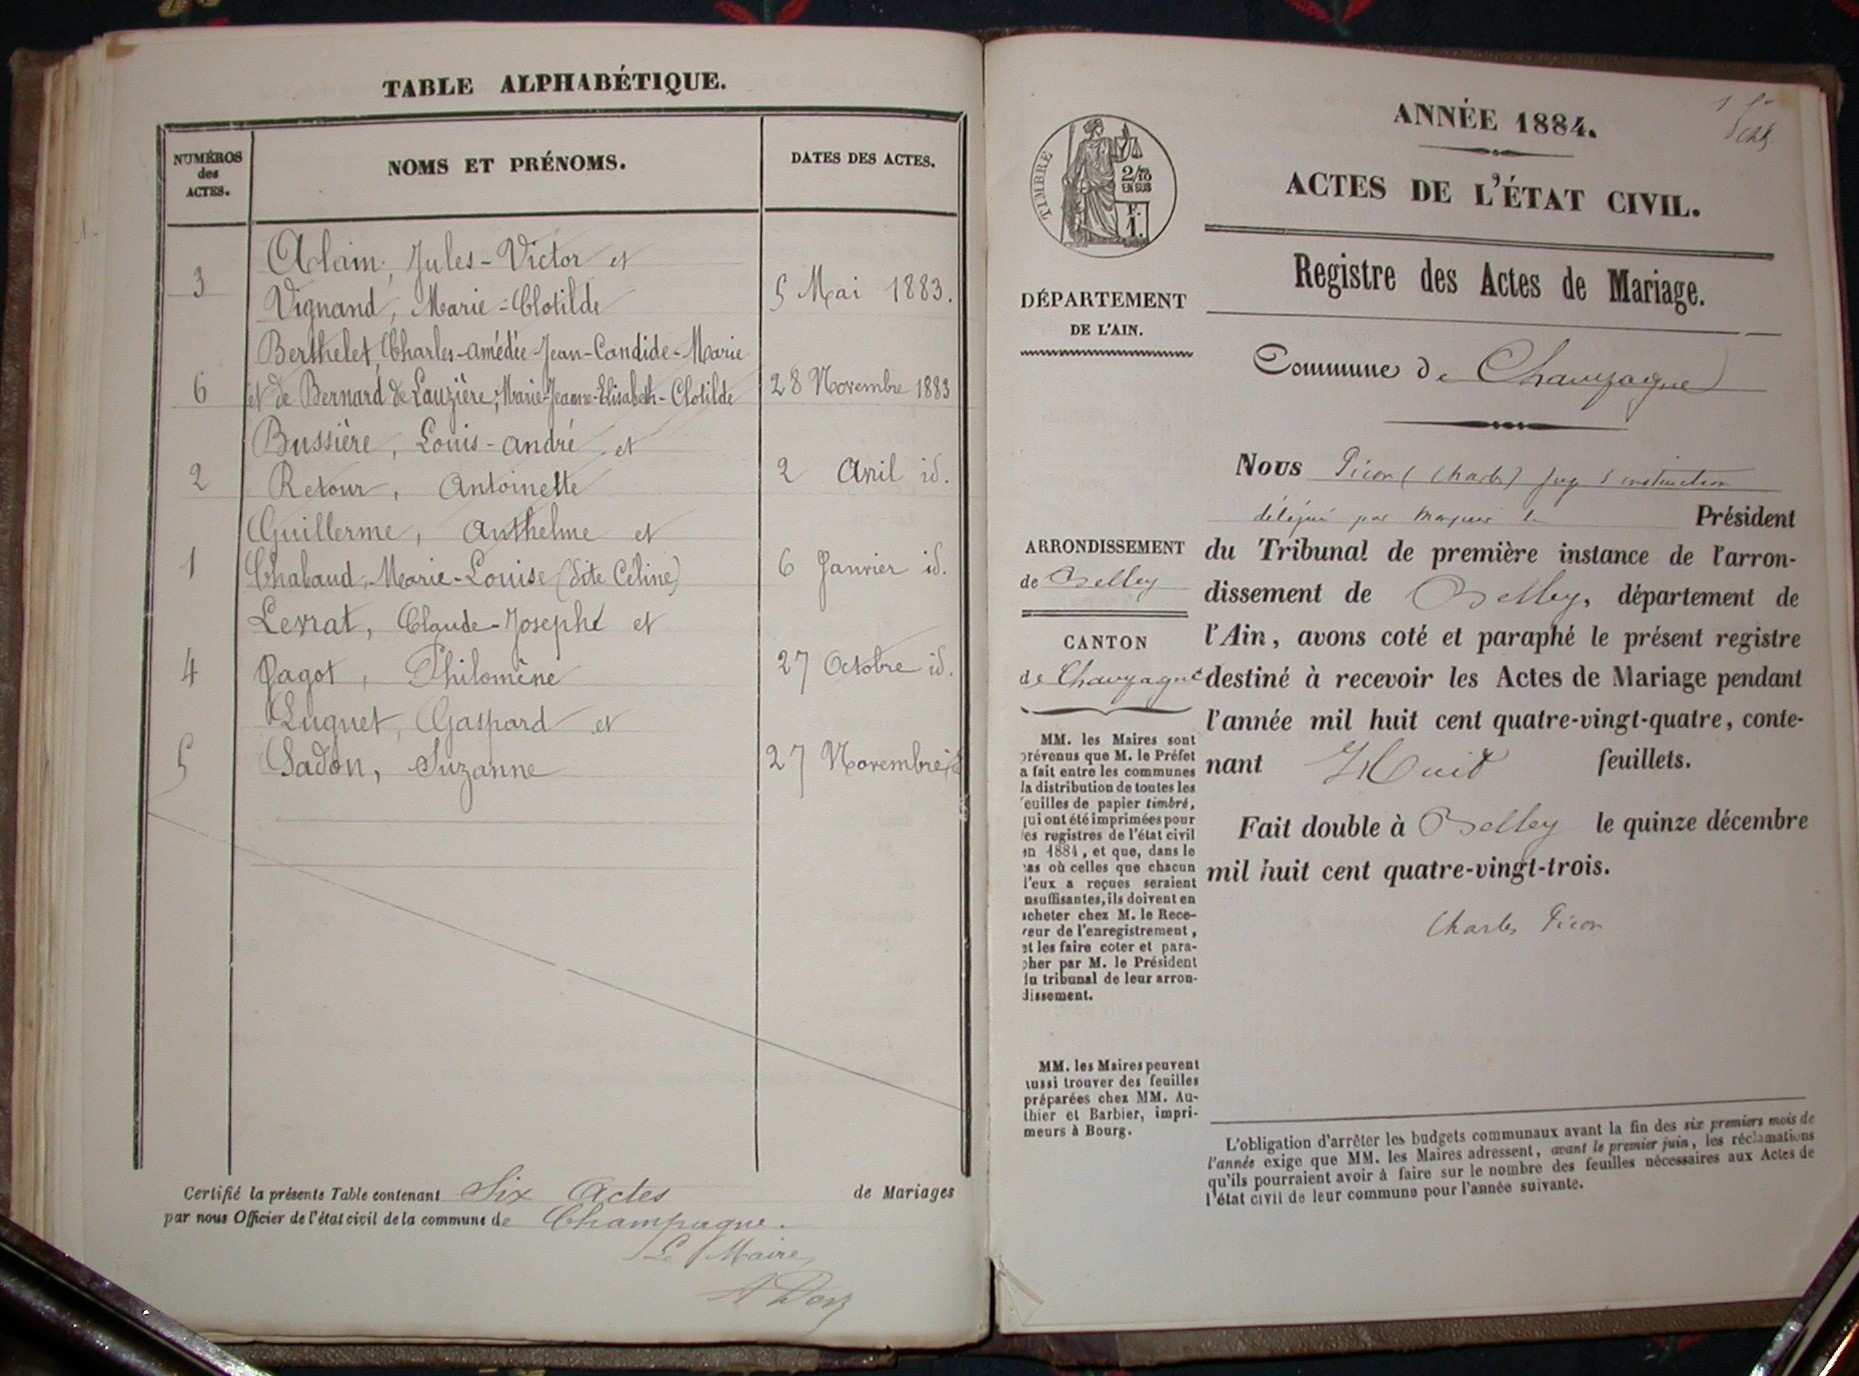 TABLE ALPHABÉTIQUE.
NUMÉROS
des
ACTES.
NOMS ET PRÉNOMS.
DATES DES ACTES.
Alain, Jules-Victor et
3
Vignand, Marie-Clotilde
5 Mai 1883.
Berthelet, Charles-Amédée-Jean-Candide-Marie
6
et de Bernard de Lauzière, Marie-Jeanne-Elisabeth-Clotilde
28 Novembre 1883
Bussière, Louis-André et
2
Retour, Antoinette
2 Avril id.
Guillerme, Anthelme et
1
Chabaud, Marie-Louise (dite Céline)
6 Janvier id.
Levrat, Claude-Joseph et
4
Pagot, Philomène
27 Octobre id.
Luquet, Gaspard et
5
Sadon, Suzanne
27 Novembre id
Certifié la présente Table contenant Six Actes de Mariages
par nous Officier de l'état civil de la commune de Champagne.
Le Maire,
ANNÉE 1884.
ACTES DE L'ÉTAT CIVIL.
Registre des Actes de Mariage.
TIMBRE
2/10
EN SUS
F.
1.
DÉPARTEMENT
DE L'AIN.
Commune de Champagne
Nous Picon (Charles) Juge d'instruction
délégué par Monsieur le Président
du Tribunal de première instance de l'arron-
dissement de Belley, département de
l'Ain, avons coté et paraphé le présent registre
destiné à recevoir les Actes de Mariage pendant
l'année mil huit cent quatre-vingt-quatre, conte-
nant Huit feuillets.
Fait double à Belley le quinze décembre
mil huit cent quatre-vingt-trois.
Charles Picon
ARRONDISSEMENT
de Belley
CANTON
de Champagne
MM. les Maires sont
prévenus que M. le Préfet
a fait entre les communes
la distribution de toutes les
feuilles de papier timbré,
qui ont été imprimées pour
les registres de l'état civil
en 1884, et que, dans le
cas où celles que chacun
d'eux a reçues seraient
insuffisantes, ils doivent en
acheter chez M. le Rece-
veur de l'enregistrement,
et les faire coter et para-
pher par M. le Président
du tribunal de leur arron-
dissement.
MM. les Maires peuvent
aussi trouver des feuilles
préparées chez MM. Au-
thier et Barbier, impri-
meurs à Bourg.
L'obligation d'arrêter les budgets communaux avant la fin des six premiers mois de
l'année exige que MM. les Maires adressent, avant le premier juin, les réclamations
qu'ils pourraient avoir à faire sur le nombre des feuilles nécessaires aux Actes de
l'état civil de leur commune pour l'année suivante.